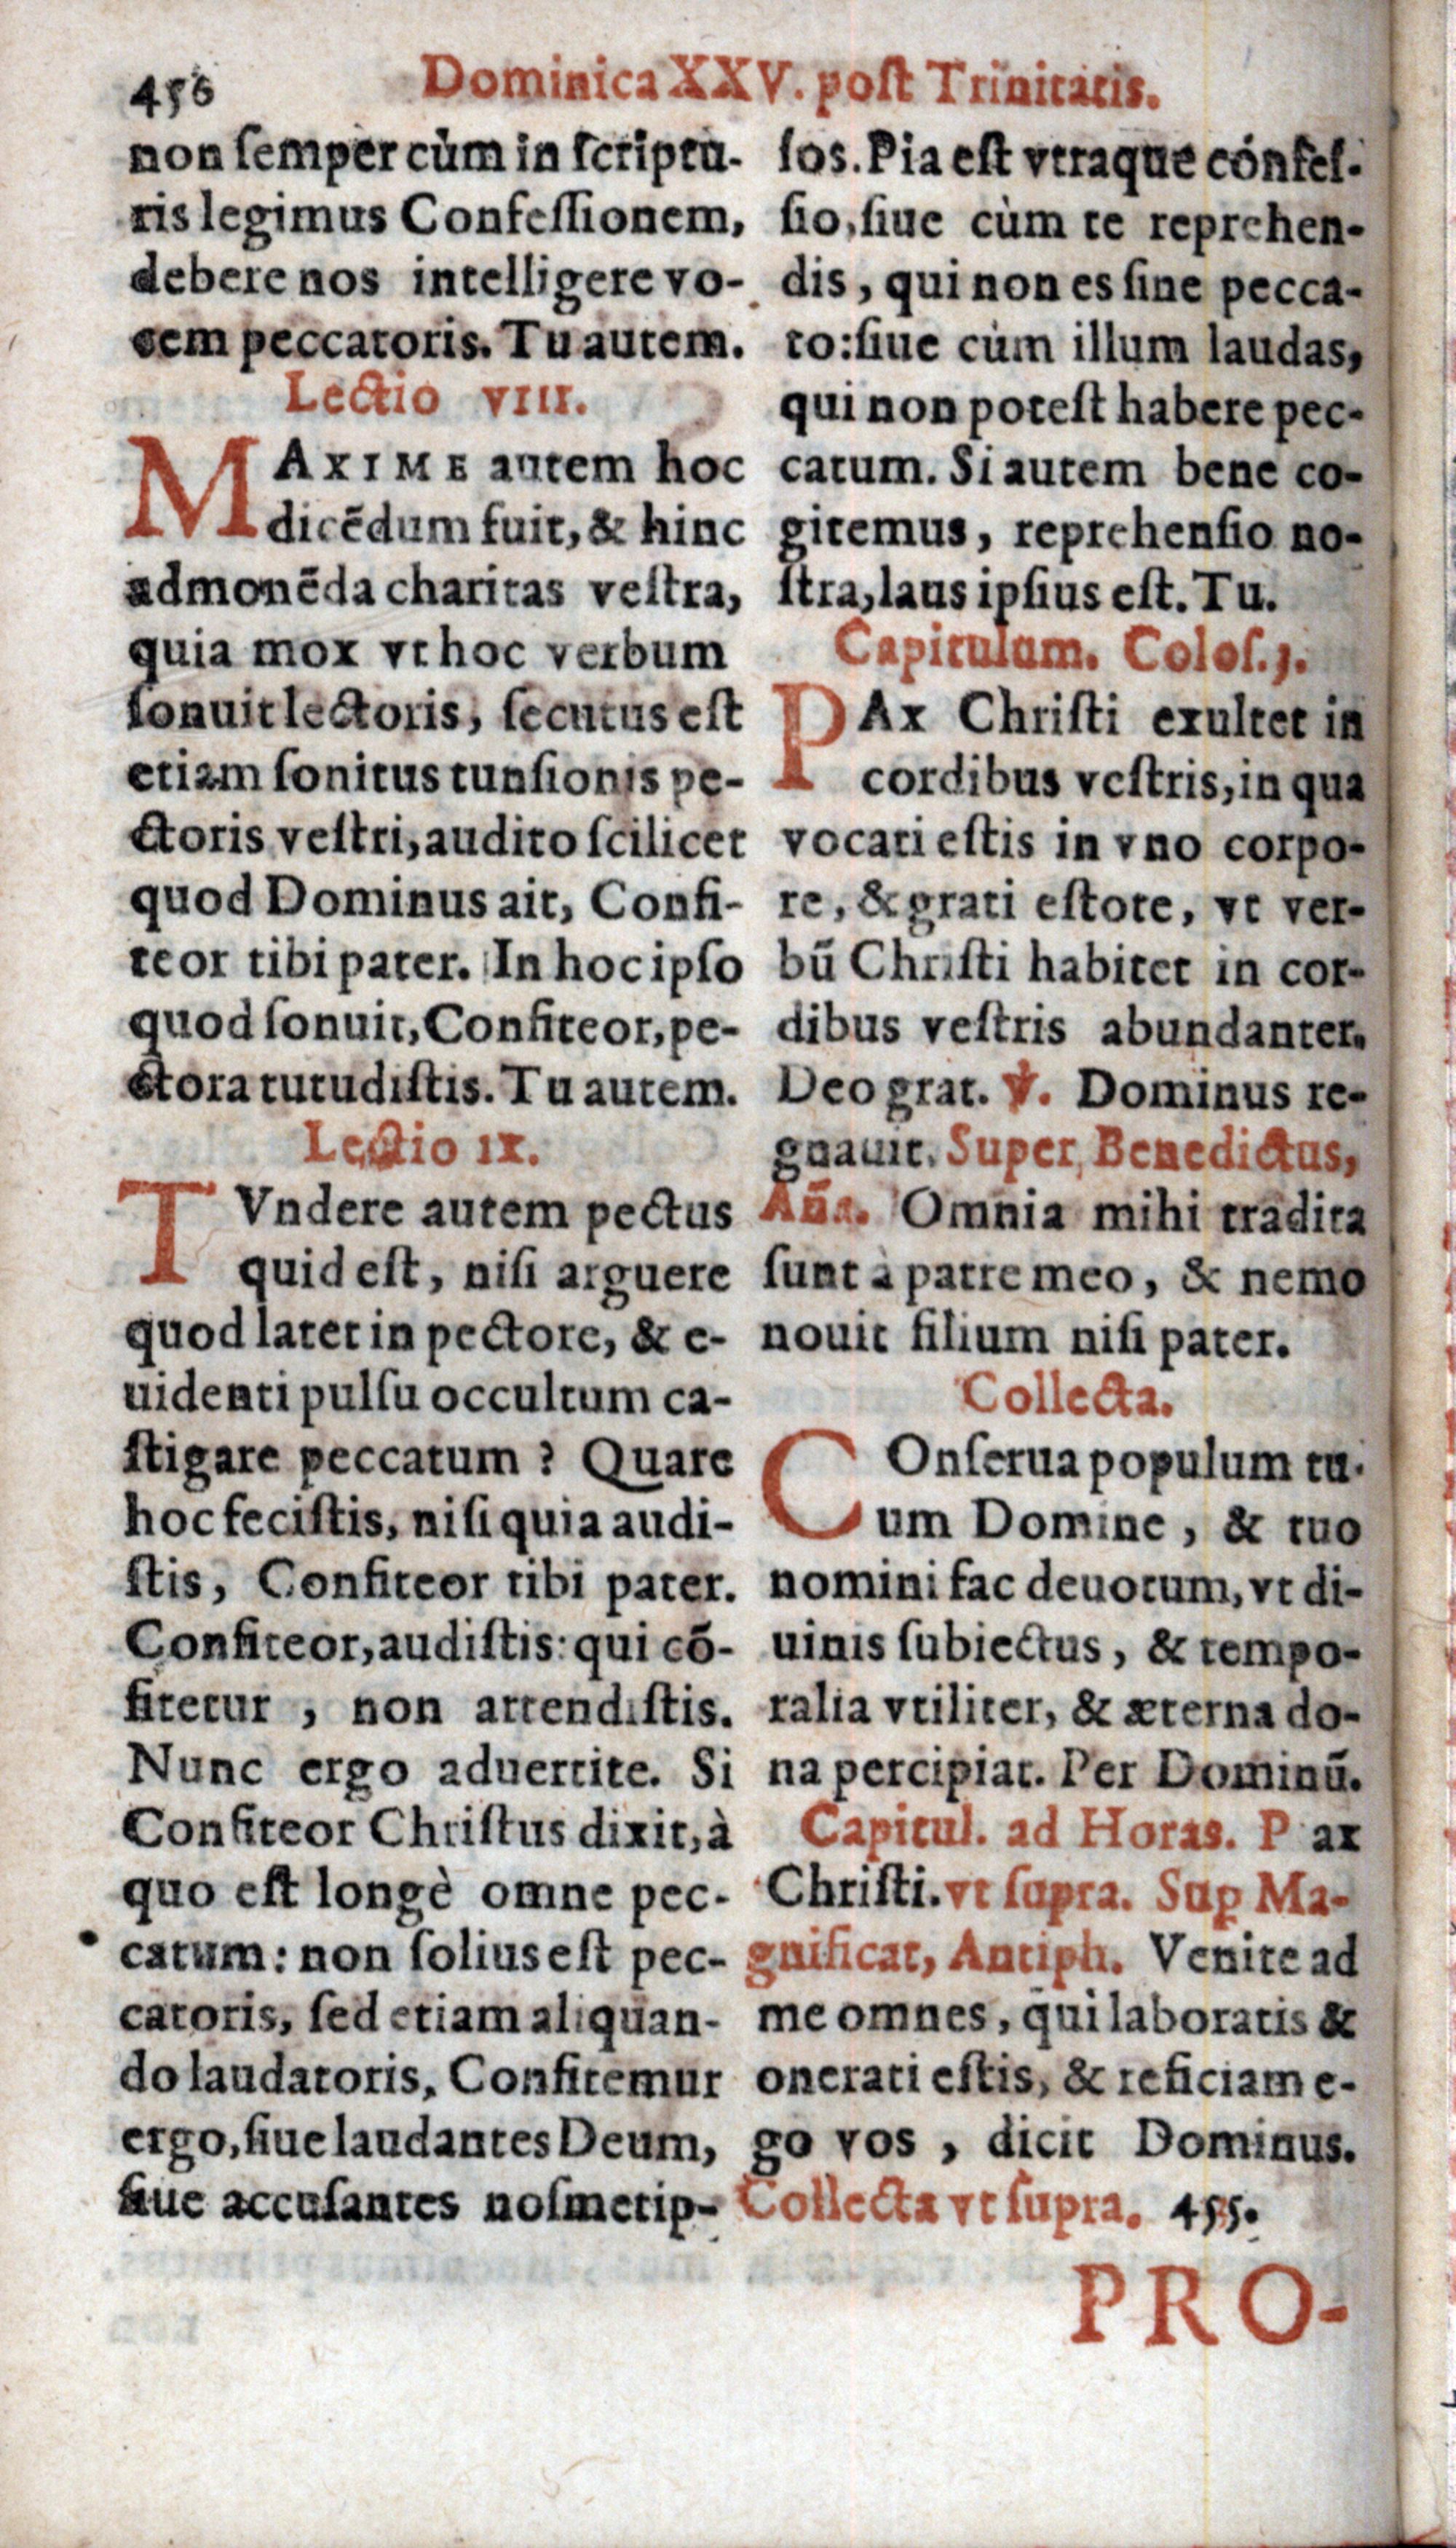 456
Dominica XXV. poſt Trinitatis.
non ſemper cùm in ſcriptu-
ris legimus Confeſſionem,
debere nos intelligere vo-
cem peccatoris. Tu autem.
Lectio VIII.
MAXIME autem hoc
dicēdum fuit, & hinc
admonēda charitas veſtra,
quia mox vt hoc verbum
ſonuit lectoris, ſecutus eſt
etiam ſonitus tunſionis pe-
ctoris veſtri, audito ſcilicet
quod Dominus ait, Confi-
teor tibi pater. In hoc ipſo
quod ſonuit, Confiteor, pe-
ctora tutudiſtis. Tu autem.
Lectio IX.
TVndere autem pectus
quid eſt, niſi arguere
quod latet in pectore, & e-
uidenti pulſu occultum ca-
ſtigare peccatum ? Quare
hoc feciſtis, niſi quia audi-
ſtis, Confiteor tibi pater.
Confiteor, audiſtis: qui cō-
fitetur , non attendiſtis.
Nunc ergo aduertite. Si
Confiteor Chriſtus dixit, à
quo eſt longè omne pec-
catum: non ſolius eſt pec-
catoris, ſed etiam aliquan-
do laudatoris, Confitemur
ergo, ſiue laudantes Deum,
ſiue accuſantes noſmetip-
ſos. Pia eſt vtraque cónfeſ-
ſio, ſiue cùm te reprehen-
dis, qui non es ſine pecca-
to: ſiue cùm illum laudas,
qui non poteſt habere pec-
catum. Si autem bene co-
gitemus, reprehenſio no-
ſtra, laus ipſius eſt. Tu.
Capitulum. Coloſ. 3.
PAx Chriſti exultet in
cordibus veſtris, in qua
vocati eſtis in vno corpo-
re, & grati eſtote, vt ver-
bū Chriſti habitet in cor-
dibus veſtris abundanter.
Deo grat. ℣. Dominus re-
gnauit. Super Benedictus,
Añа. Omnia mihi tradita
ſunt à patre meo, & nemo
nouit filium niſi pater.
Collecta.
COnſerua populum tu-
um Domine, & tuo
nomini fac deuotum, vt di-
uinis ſubiectus, & tempo-
ralia vtiliter, & æterna do-
na percipiat. Per Dominū.
Capitul. ad Horas. P ax
Chriſti. vt ſupra. Suꝑ Ma-
gnificat, Antiph. Venite ad
me omnes, qui laboratis &
onerati eſtis, & reficiam e-
go vos , dicit Dominus.
Collecta vt ſupra. 455.
PRO-